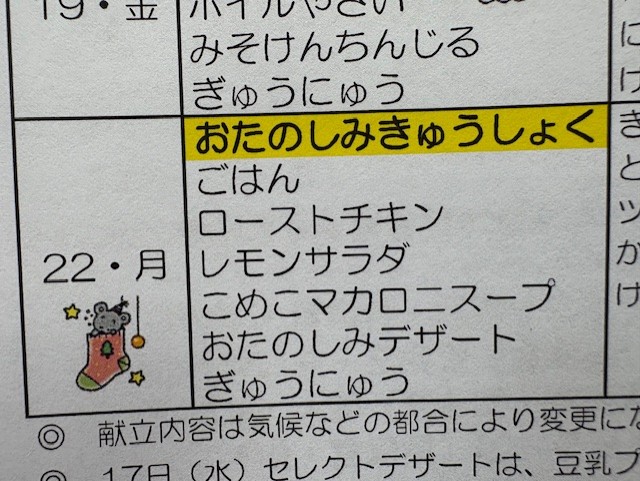 19・金
ボイルやさい
みそけんちんじる
ぎゅうにゅう
22・月
おたのしみきゅうしょく
ごはん
ローストチキン
レモンサラダ
こめこマカロニスープ
おたのしみデザート
ぎゅうにゅう
◎ 献立内容は気候などの都合により変更にな
◎ 17日（水）セレクトデザートは、豆乳プ